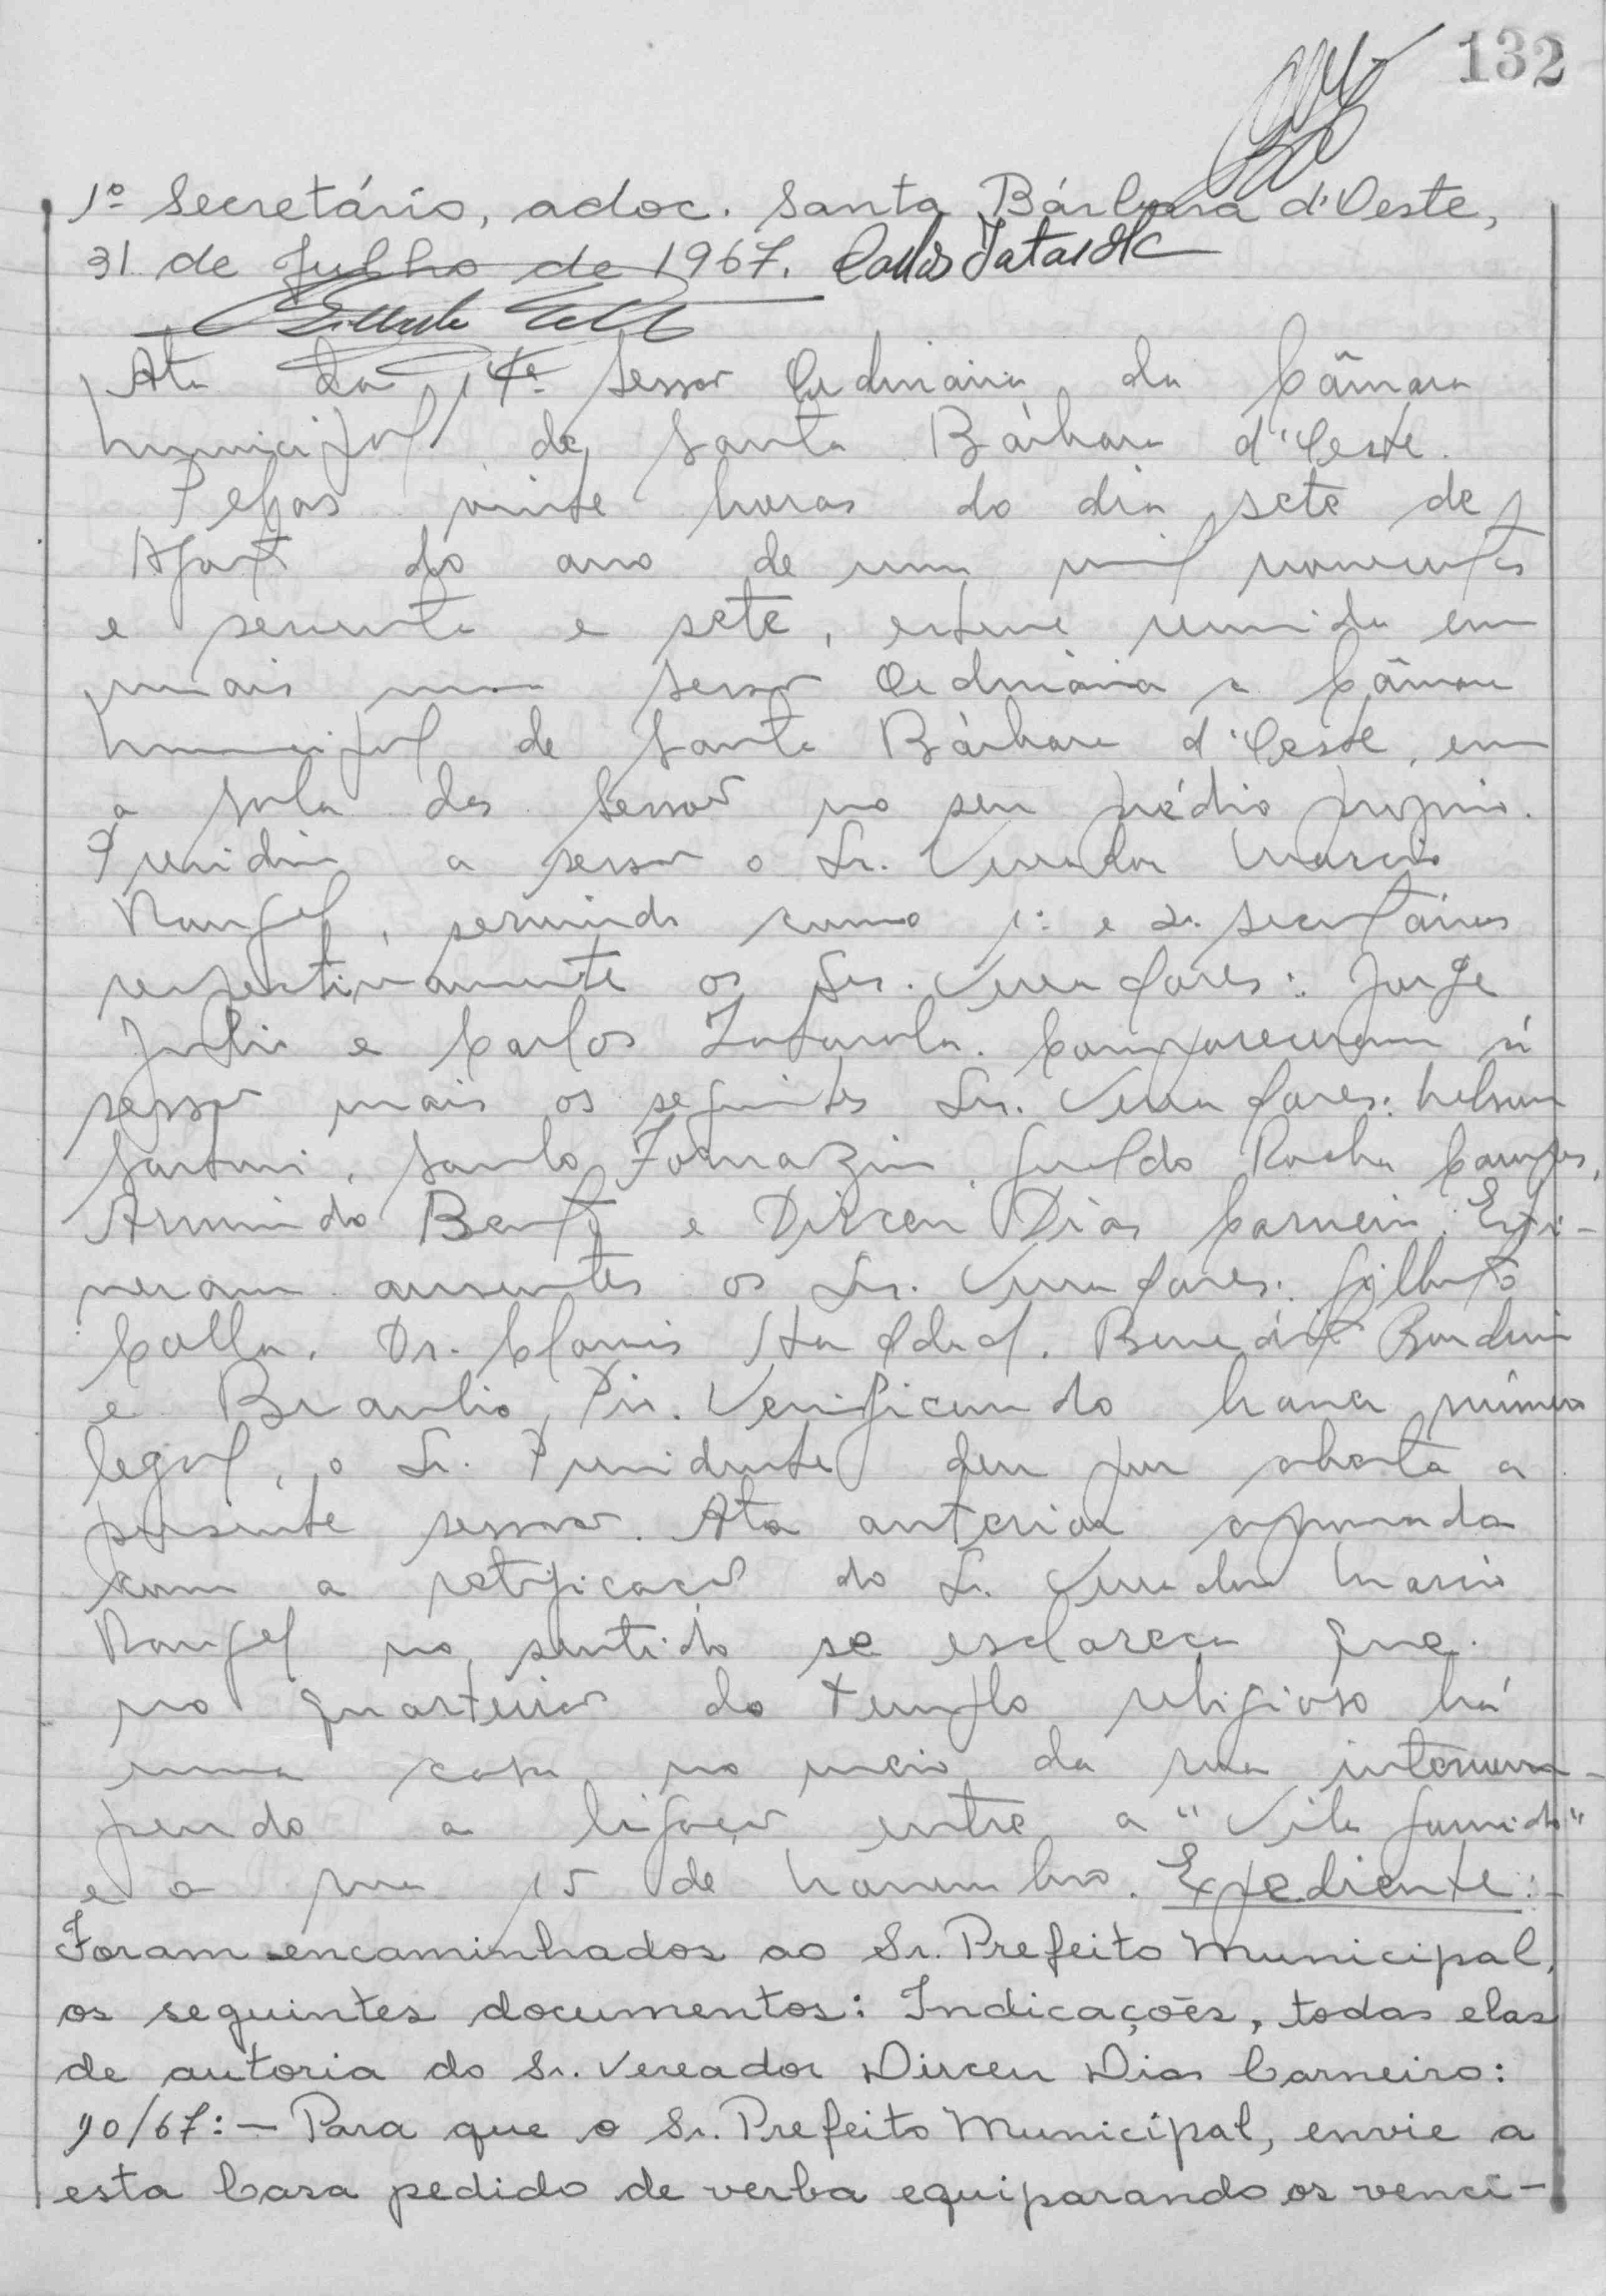 132
1º Secretário, adoc. Santa Bárbara d'Oeste,
31 de Julho de 1967.
Ata da 14ª Sessão Ordinária da Câmara
Municipal de Santa Bárbara d'Oeste.
Pelas vinte horas do dia sete de
Agosto do ano de um mil novecentos
e sessenta e sete, esteve reunida em
mais uma sessão Ordinária a Câmara
Municipal de Santa Bárbara d'Oeste, em
a sala das Sessões no seu prédio próprio.
Presidiu a sessão o Sr. Vereador Marcio
Rangel, servindo como 1º e 2º secretários
respectivamente os Srs. Vereadores: Jorge
Julio e Carlos Tatarola. Compareceram à
sessão mais os seguintes Srs. Vereadores: Nelson
Sartori, Santo Fornazin, Geraldo Rocha Campos,
Armindo Bento e Dirceu Dias Carneiro. Esti-
veram ausentes os Srs. Vereadores: Gilberto
Colla, Dr. Clovis Benedito Bordini
e Braulio Pio. Verificando haver número
legal, o Sr. Presidente deu por aberta a
presente sessão. Ata anterior aprovada
com a retificação do Sr. Vereador Marcio
Rangel no sentido se esclareça que
no quarteirão do templo religioso há
uma casa no meio da rua interrom-
pendo a ligação entre a "Vila
e a rua 15 de Novembro. Expediente:-
Foram encaminhados ao Sr. Prefeito Municipal,
os seguintes documentos: Indicações, todas elas
de autoria do Sr. Vereador Dirceu Dias Carneiro:
90/67:- Para que o Sr. Prefeito Municipal, envie a
esta Casa pedido de verba equiparando os venci-